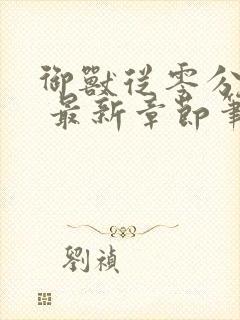 御獸從零分
最新章節筆
劉禎